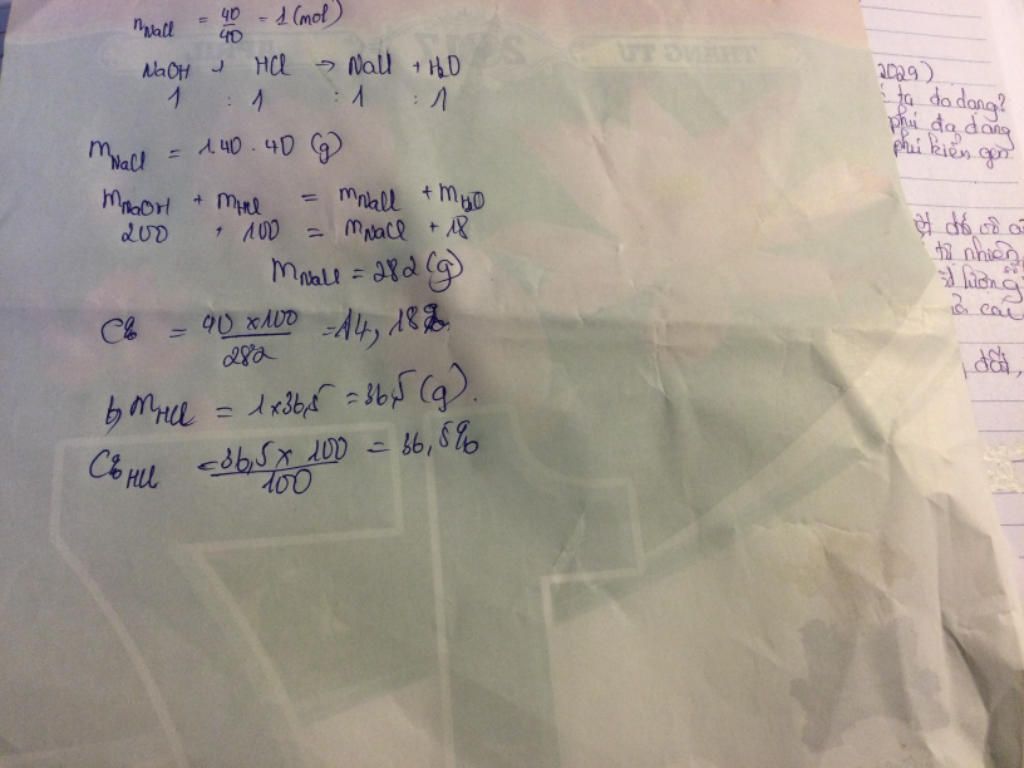 nNaCl = 40/40 = 1 (mol)
NaOH + HCl → NaCl + H2O
1 : 1 : 1 : 1
mNaCl = 1.40 . 40 (g)
mNaOH + mHCl = mNaCl + mH2O
200 + 100 = mNaCl + 18
mNaCl = 282 (g)
C% = 40 x 100 / 282 = 14,18%
b, mHCl = 1 x 36,5 = 36,5 (g).
C% HCl = 36,5 x 100 / 100 = 36,5%
2017
THÁNG TƯ
2029)
ta đa dạng?
phú đa dạng
phải kiến
tự nhiên
lượng
đất,